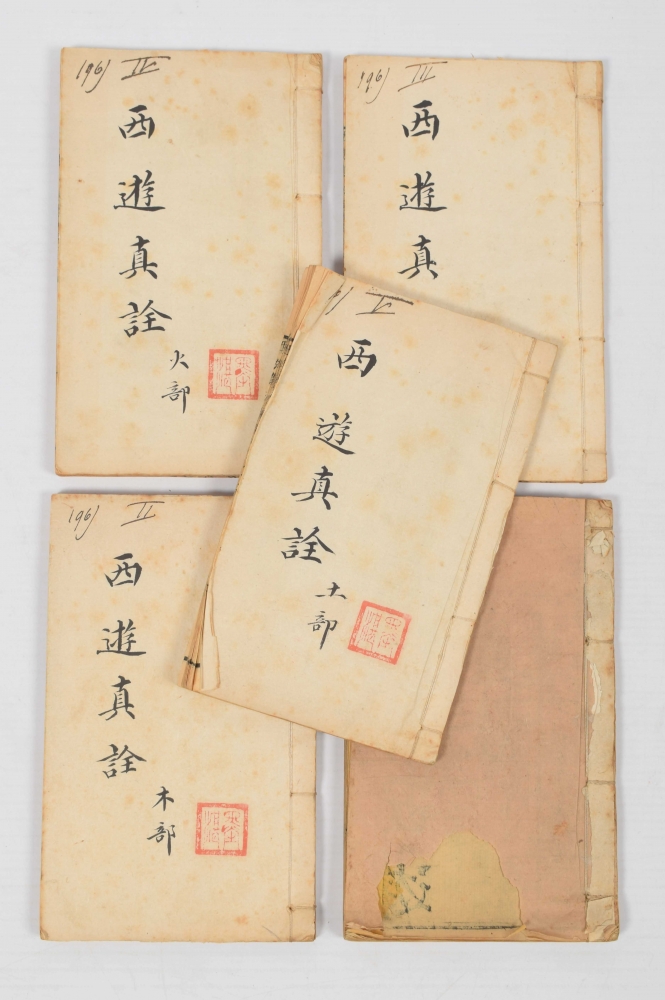 196) IV
西遊真詮
火部
196) III
西遊真
V
西遊真詮
土部
196) II
西遊真詮
木部